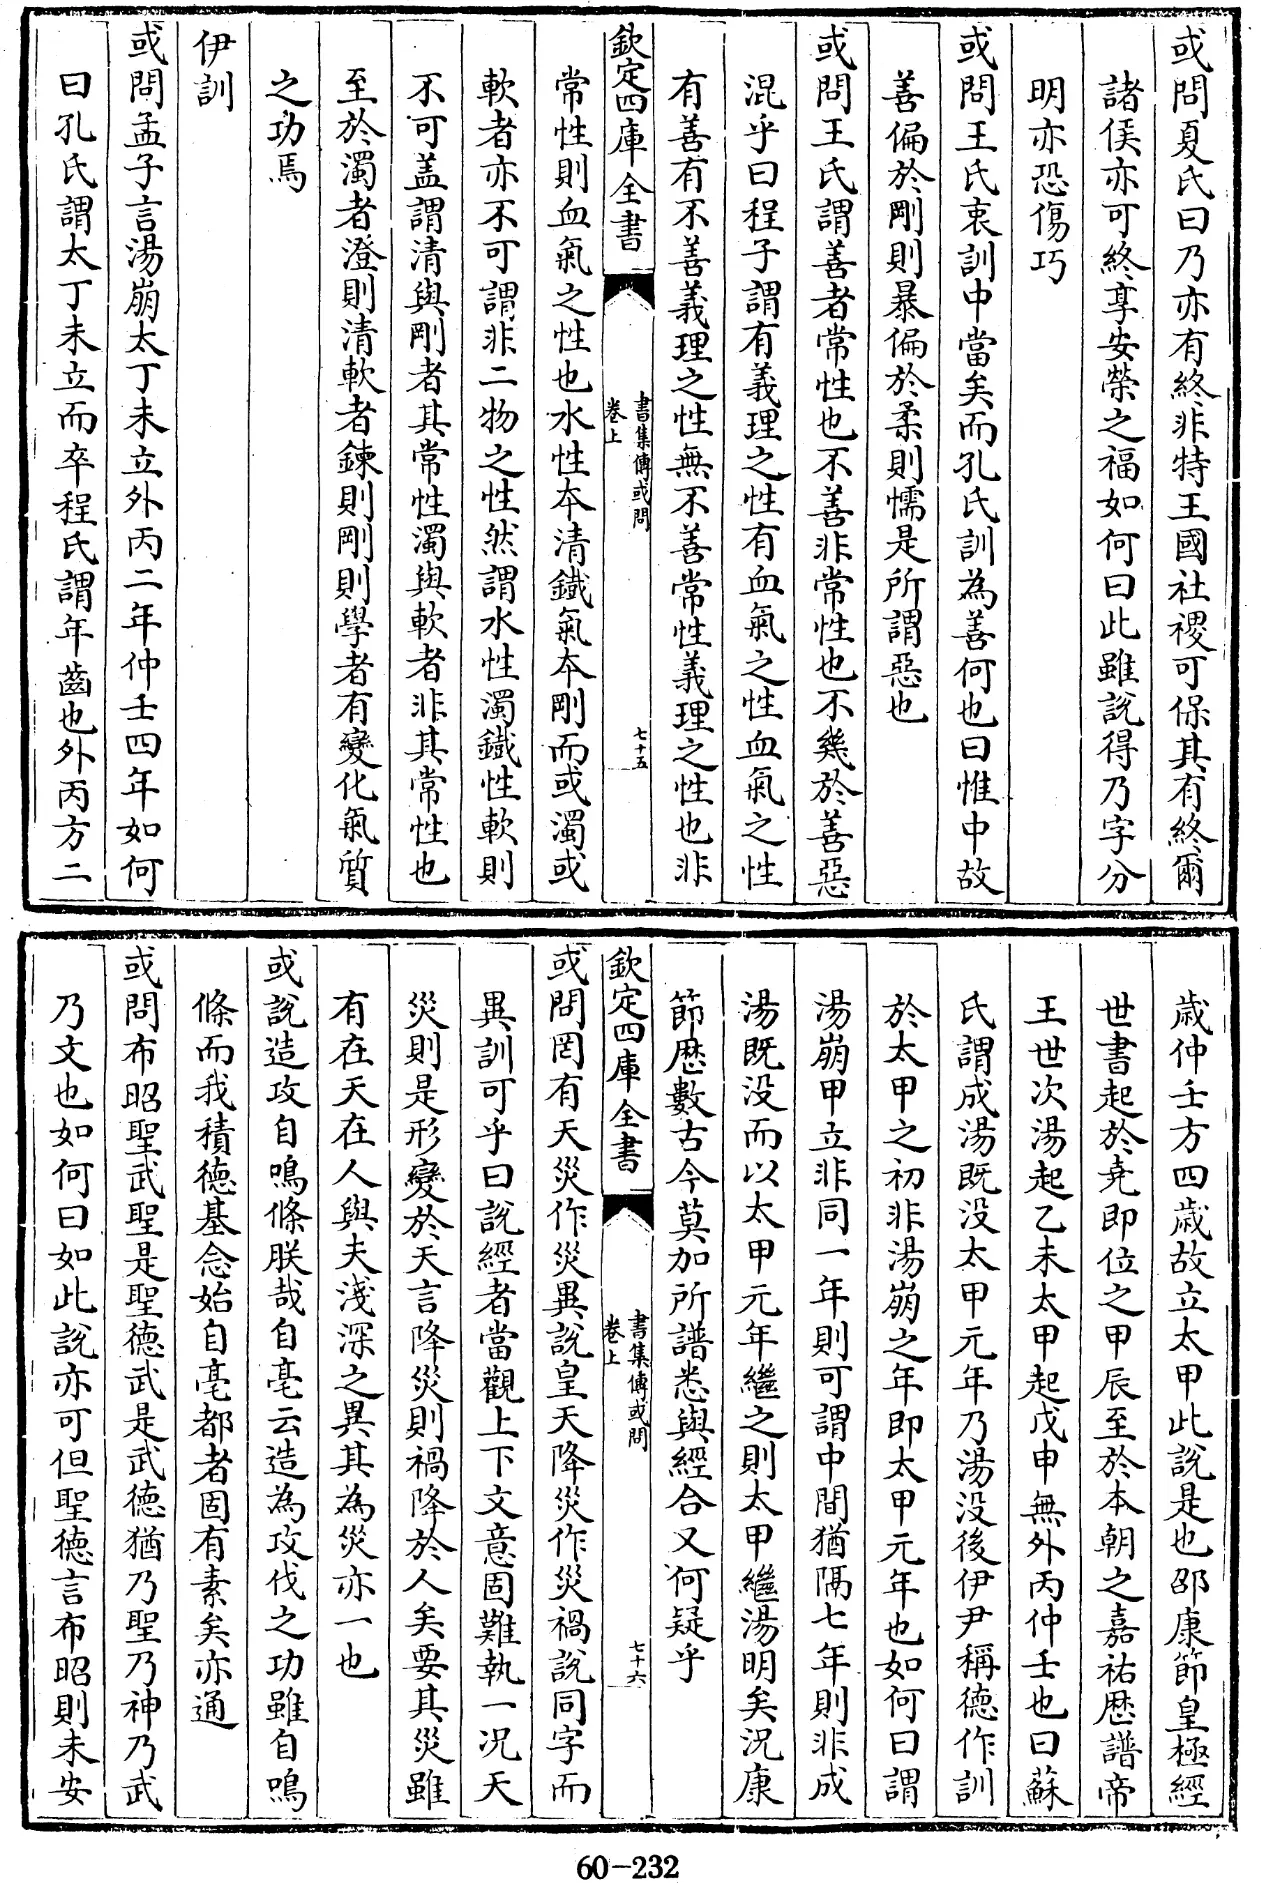 或問夏氏曰乃亦有終非特王國社稷可保其有終爾
諸侯亦可終享安榮之福如何曰此雖說得乃字分
明亦恐傷巧
或問王氏衷訓中當矣而孔氏訓為善何也曰惟中故
善偏於剛則暴偏於柔則懦是所謂惡也
或問王氏謂善者常性也不善非常性也不幾於善惡
混乎曰程子謂有義理之性有血氣之性血氣之性
有善有不善義理之性無不善常性義理之性也非
欽定四庫全書
書集傳或問
卷上
七十五
常性則血氣之性也水性本清鐵氣本剛而或濁或
軟者亦不可謂非二物之性然謂水性濁鐵性軟則
不可盖謂清與剛者其常性濁與軟者非其常性也
至於濁者澄則清軟者鍊則剛則學者有變化氣質
之功焉
伊訓
或問孟子言湯崩太丁未立外丙二年仲壬四年如何
曰孔氏謂太丁未立而卒程氏謂年齒也外丙方二
歲仲壬方四歲故立太甲此說是也邵康節皇極經
世書起於堯即位之甲辰至於本朝之嘉祐厯譜帝
王世次湯起乙未太甲起戊申無外丙仲壬也曰蘇
氏謂成湯既沒太甲元年乃湯沒後伊尹稱德作訓
於太甲之初非湯崩之年即太甲元年也如何曰謂
湯崩甲立非同一年則可謂中間猶隔七年則非成
湯既沒而以太甲元年繼之則太甲繼湯明矣況康
節厯數古今莫加所譜悉與經合又何疑乎
欽定四庫全書
書集傳或問
卷上
七十六
或問罔有天災作災異說皇天降災作災禍說同字而
異訓可乎曰說經者當觀上下文意固難執一況天
災則是形變於天言降災則禍降於人矣要其災雖
有在天在人與夫淺深之異其為災亦一也
或說造攻自鳴條朕哉自亳云造為攻伐之功雖自鳴
條而我積德基念始自亳都者固有素矣亦通
或問布昭聖武聖是聖德武是武德猶乃聖乃神乃武
乃文也如何曰如此說亦可但聖德言布昭則未安
60-232